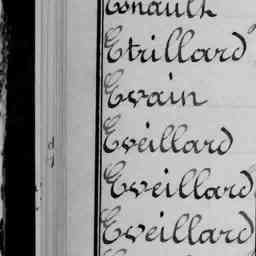 Esnault
Etrillard
Evain
Eveillard
Eveillard
Eveillard